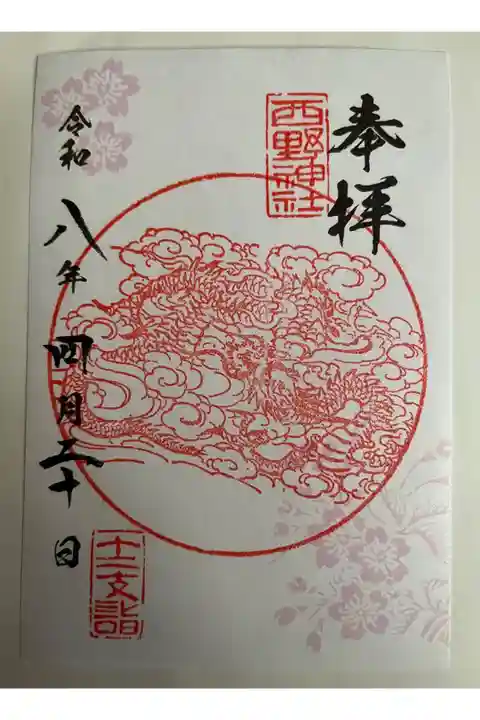 奉拝
西野神社
令和八年四月十日
十二支詣